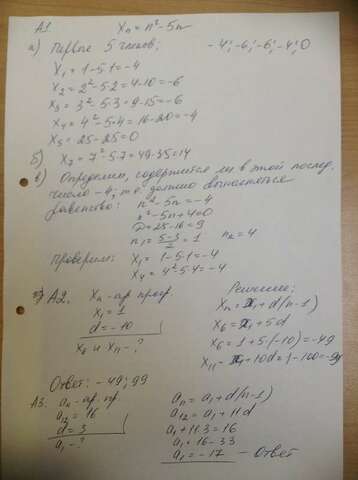 А1 Xn = n² - 5n
а) Первые 5 членов: -4; -6; -6; -4; 0
X1 = 1 - 5·1 = -4
X2 = 2² - 5·2 = 4 - 10 = -6
X3 = 3² - 5·3 = 9 - 15 = -6
X4 = 4² - 5·4 = 16 - 20 = -4
X5 = 25 - 25 = 0
б) X7 = 7² - 5·7 = 49 - 35 = 14
в) Определим, содержится ли в этой послед.
число -4, т.е. должно выполняться
равенство: n² - 5n = -4
n² - 5n + 4 = 0
D = 25 - 16 = 9
n1 = (5-3)/2 = 1 n2 = 4
Проверим: X1 = 1 - 5·1 = -4
X4 = 4² - 5·4 = -4
А2. Xn - ар. прогр. Решение:
X1 = 1 Xn = X1 + d(n-1)
d = -10 X6 = X1 + 5d
X6 и X11 - ? X6 = 1 + 5·(-10) = -49
X11 = X1 + 10d = 1 - 100 = -99
Ответ: -49; 99
А3. an - ар. пр. an = a1 + d(n-1)
a12 = 16 a12 = a1 + 11d
d = 3 a1 + 11·3 = 16
a1 - ? a1 = 16 - 33
a1 = -17 - Ответ